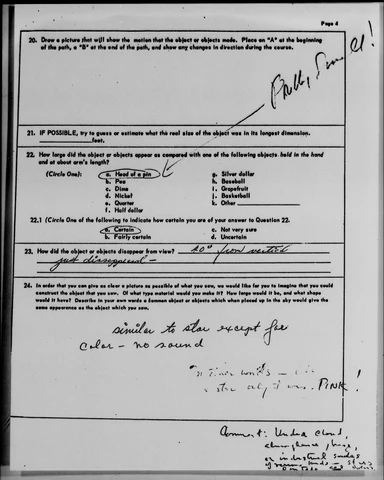 Page 4
20. Draw a picture that will show the motion that the object or objects made. Place an "A" at the beginning
of the path, a "B" at the end of the path, and show any changes in direction during the course.
Pretty Small!
21. IF POSSIBLE, try to guess or estimate what the real size of the object was in its longest dimension.
feet.
22. How large did the object or objects appear as compared with one of the following objects held in the hand
and at about arm's length?
(Circle One): a. Head of a pin g. Silver dollar
b. Pea h. Baseball
c. Dime i. Grapefruit
d. Nickel j. Basketball
e. Quarter k. Other
f. Half dollar
22.1 (Circle One of the following to indicate how certain you are of your answer to Question 22.
a. Certain c. Not very sure
b. Fairly certain d. Uncertain
23. How did the object or objects disappear from view? 20° from vertical
just disappeared —
24. In order that you can give as clear a picture as possible of what you saw, we would like for you to imagine that you could
construct the object that you saw. Of what type material would you make it? How large would it be, and what shape
would it have? Describe in your own words a common object or objects which when placed up in the sky would give the
same appearance as the object which you saw.
similar to star except for
color - no sound
In other words —
a star only it was PINK!
Comment: Under cloud,
or industrial smoke